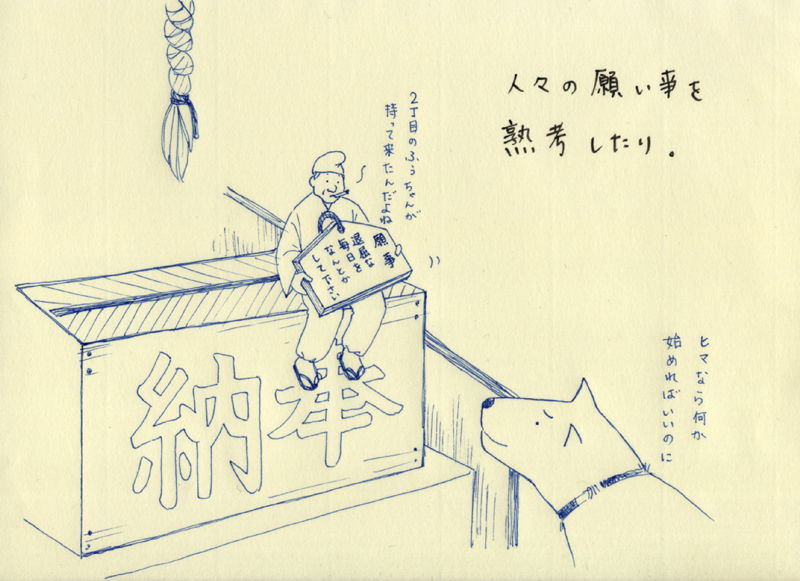 人々の願い事を
熟考したり。
2丁目のふぅちゃんが
持って来たんだよね
願事
退屈な
毎日を
なんとか
して下さい
奉納
ヒマなら何か
始めればいいのに